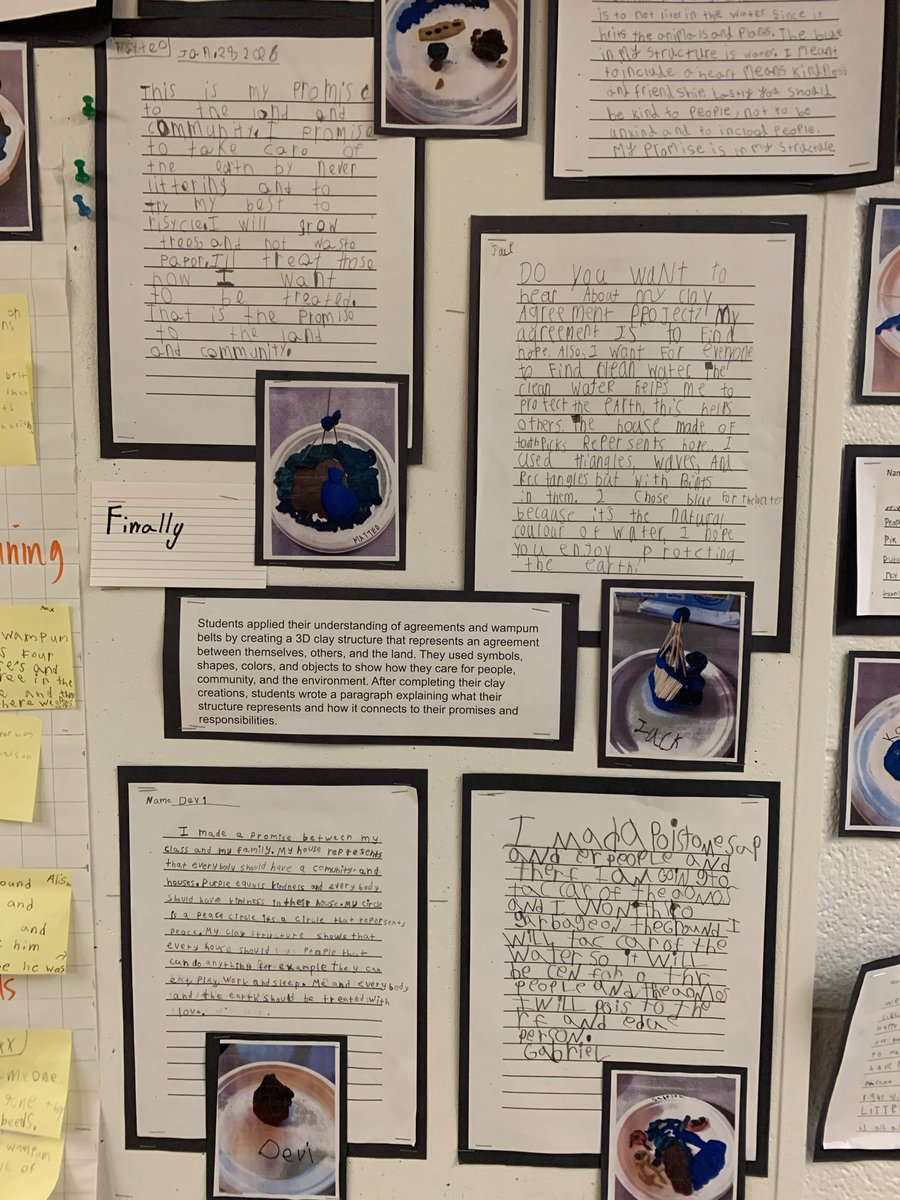 Matteo Jan. 29, 2026
This is my Promise
to the land and
community. I promise
to take care of
the earth by never
littering and to
try my best to
risycle. I will grow
trees, and not waste
paper. I'll treat those
how I want
to be treated.
That is the Promise
to the land
and community.
MATTEO
is to not liter in the water since it
hrits the animals and plants. The blue
in my structure is water. I meant
to include a heart means kindness
and friendship
be kind to people, not to be
unkind and to inclood people.
My Promise is in my structure
Jack
Do you want to
hear About my clay
Agreement project? My
agreement Is to Find
hope. Also, I want For everyone
to Find clean water the
clean water helps me to
protect the earth, this helps
others. The house made of
toothpicks Repersents hope. I
used triangles, waves, And
Rectangles but with Points
in them. I chose blue for the water
because it's the natural
coulour of water, I hope
you enjoy proteting
the earth!
JACK
Finally
Students applied their understanding of agreements and wampum
belts by creating a 3D clay structure that represents an agreement
between themselves, others, and the land. They used symbols,
shapes, colors, and objects to show how they care for people,
community, and the environment. After completing their clay
creations, students wrote a paragraph explaining what their
structure represents and how it connects to their promises and
responsibilities.
Name Devi
I made a promise between my
class and my family. My house represents
that everybody should have a comunity and
houses. Purple equals kindness and every body
should have kindness in their house. My circle
is a peace circle its a circle that repersents
peace. My clay structure shows that
every house should love people that
can do anything for example they can
eat, play, work and sleep. Me and everybody
and the earth should be treated with
love.
Devi
I mada
and er people and
therf I am going to
tac car of the
and I
garbage on the ground I
will tac car of the
water so it will
be cen for
people and the
I will to the
and
person.
Gabriel
Gabriel
wampum
four
and
in the
and
there
Alisa
and
and
him
he was
someone
beeds.
wampum
of